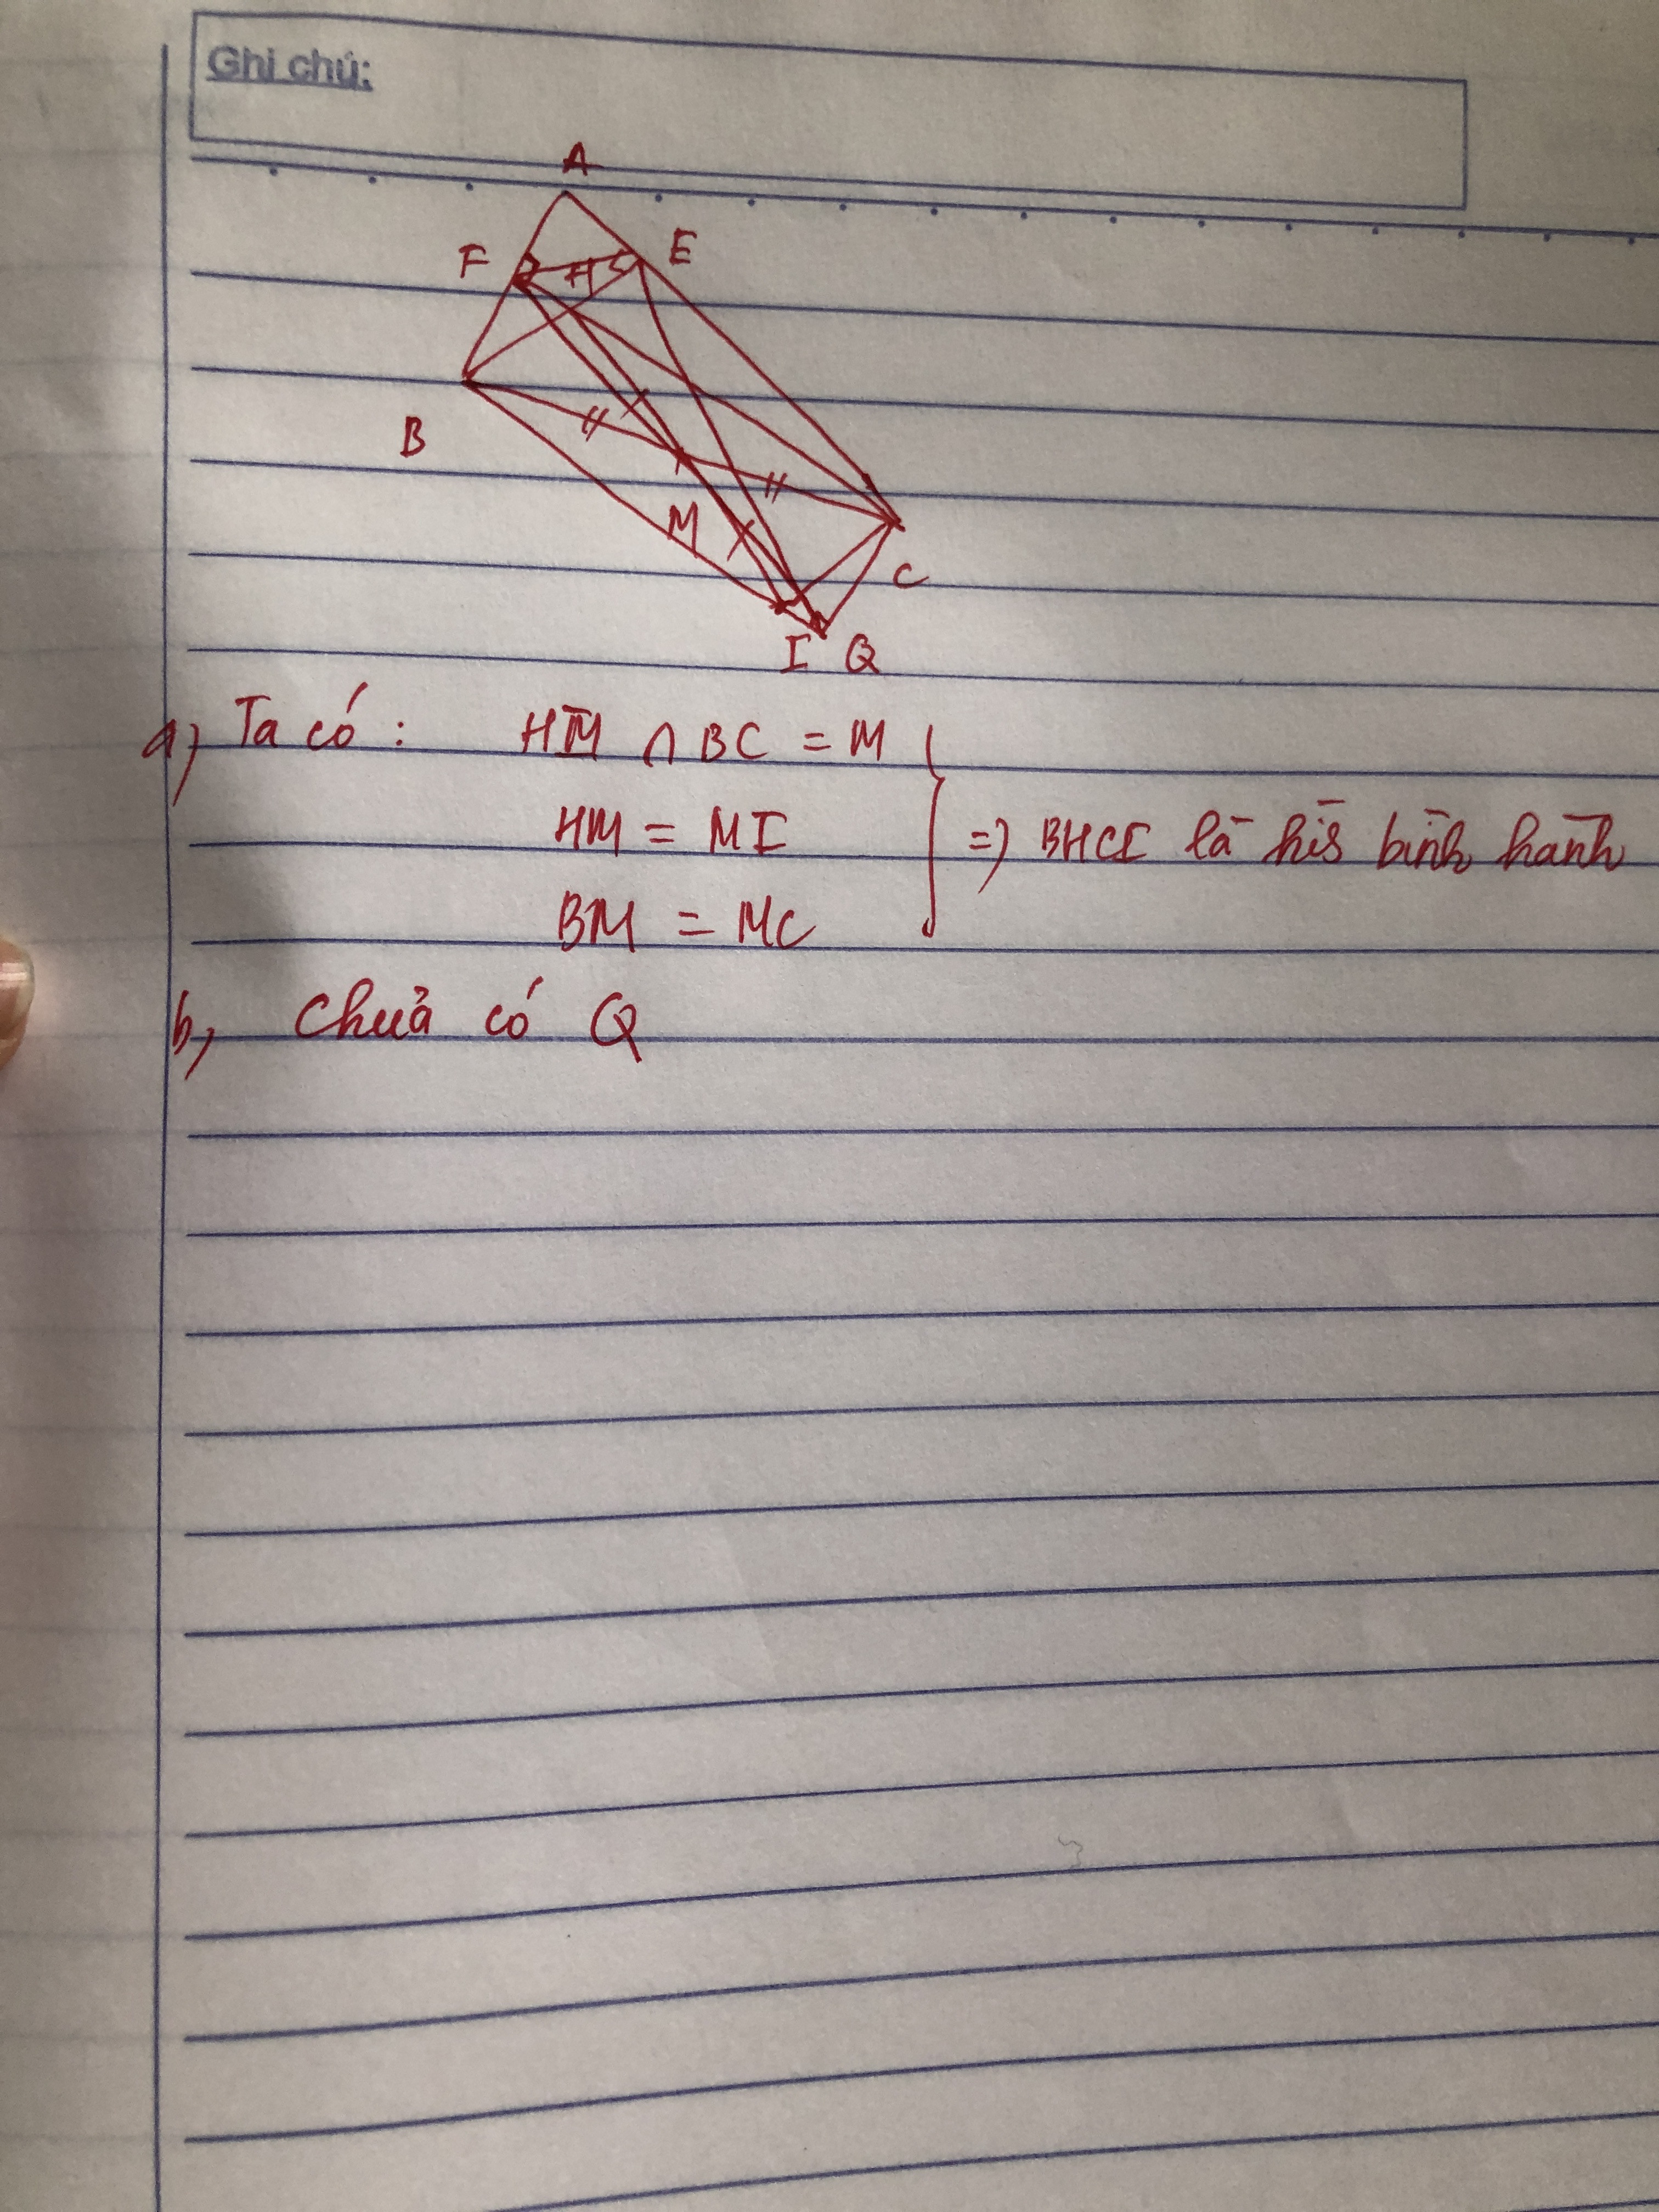 Ghi chú:
A
F H E
B
M
C
I Q
a, Ta có : HM ∩ BC = M
HM = MI => BHCI là hìs bình hành
BM = MC
b, Chưả có Q